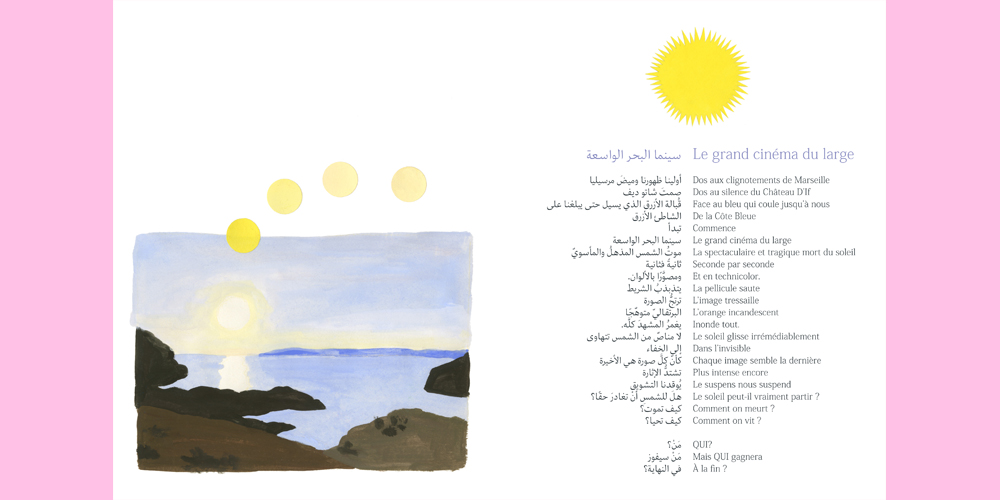 سينما البحر الواسعة
Le grand cinéma du large
أولينا ظهورنا وميضَ مرسيليا
Dos aux clignotements de Marseille
صمتَ شاتو ديف
Dos au silence du Château D'If
قُبالة الأزرق الذي يسيل حتى يبلغنا على
Face au bleu qui coule jusqu'à nous
الشاطئ الأزرق
De la Côte Bleue
تبدأ
Commence
سينما البحر الواسعة
Le grand cinéma du large
موتُ الشمس المذهلُ والمأسويّ
La spectaculaire et tragique mort du soleil
ثانيةً فثانية
Seconde par seconde
ومصوَّرًا بالألوان.
Et en technicolor.
يتذبذبُ الشريط
La pellicule saute
ترتجُّ الصورة
L'image tressaille
البرتقاليّ متوهِّجًا
L'orange incandescent
يغمرُ المشهدَ كلَّه.
Inonde tout.
لا مناصَّ من الشمس تتهاوى
Le soleil glisse irrémédiablement
إلى الخفاء
Dans l'invisible
كأنّ كلَّ صورة هي الأخيرة
Chaque image semble la dernière
تشتدُّ الإثارة
Plus intense encore
يُوقدنا التشويق
Le suspens nous suspend
هل للشمس أنْ تغادرَ حقًّا؟
Le soleil peut-il vraiment partir ?
كيف تموت؟
Comment on meurt ?
كيف تحيا؟
Comment on vit ?
مَنْ؟
QUI?
مَنْ سيفوز
Mais QUI gagnera
في النهاية؟
À la fin ?